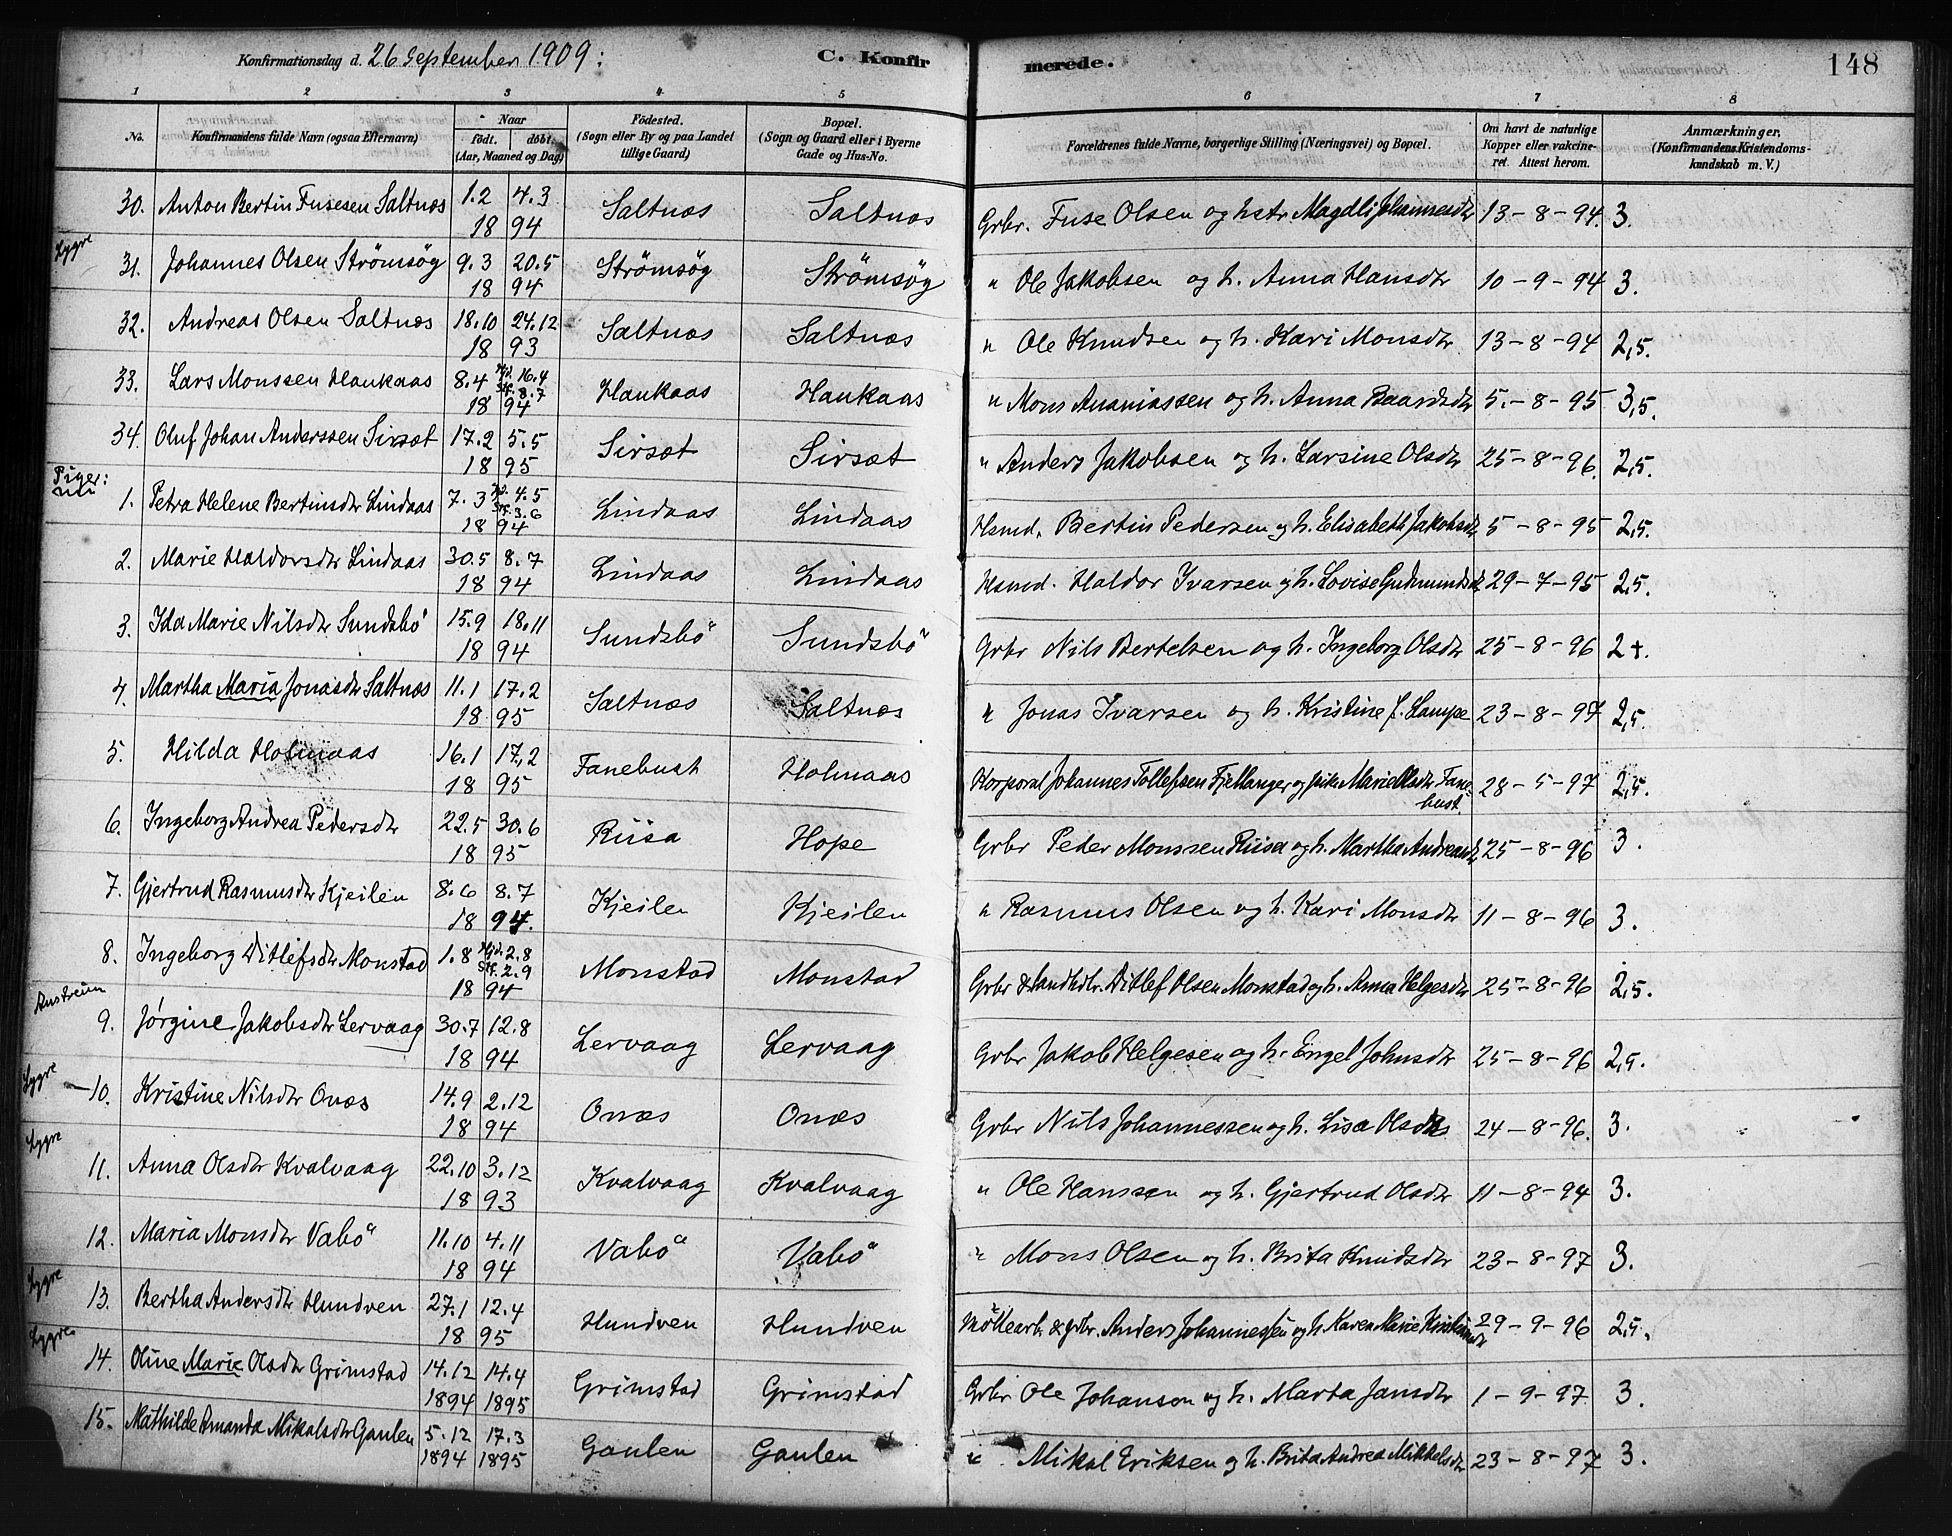 Konfirmationsdag d. 26 September 1909: C. Konfirmerede. 148
1 2 3 4 5 6 7 8
No. Konfirmandens fulde Navn (ogsaa Efternavn) Naar født. døbt. (Aar, Maaned og Dag) Fødested. (Sogn eller By og paa Landet tillige Gaard) Bopæl. (Sogn og Gaard eller i Byerne Gade og Hus-No. Forældrenes fulde Navne, borgerlige Stilling (Næringsvei) og Bopæl. Om havt de naturlige Kopper eller vaccineret. Attest herom. Anmærkninger, (Konfirmandens Kristendomskundskab m. V.)
30. Anton Bertin Fusesen Saltnæs 1.2 4.3 1894 Saltnæs Saltnæs Grbr. Fuse Olsen og hstr Magdli Johannesdtr 13-8-94. 3.
Lygre 31. Johannes Olsen Strømsøg 9.3 20.5 1894 Strømsøg Strømsøg " Ole Jakobsen og h. Anna Hansdtr 10-9-94 3.
32. Andreas Olsen Saltnæs 18.10 24.12 1893 Saltnæs Saltnæs " Ole Knudsen og h. Kari Monsdtr 13-8-94 2,5.
33. Lars Monssen Haukaas 8.4 Hjd. 16.4 Stf. 8.7 1894 Haukaas Haukaas " Mons Ananiassen og h. Anna Baardsdtr 5.-8-95 3,5.
34. Oluf Johan Anderssen Sirsæt 17.2 5.5 1895 Sirsæt Sirsæt " Anders Jakobsen og h. Larsine Olsdtr 25-8-96. 2,5.
Piger:
1. Petra Helene Bertinsdtr Lindaas 7.3 Hjd. 4.5 Stf. 3.6 1894 Lindaas Lindaas Hsmd. Bertin Pedersen og h. Elisabeth Jakobsdtr 5-8-95 2,5.
2. Marie Haldorsdtr Lindaas 30.5 8.7 1894 Lindaas Lindaas Hsmd. Haldor Ivarsen og h. Lovise Gudmundsdtr 29-7-95 2,5.
3. Ida Marie Nilsdtr Sundsbö 15.9 18.11 1894 Sundsbö Sundsbö Grbr Nils Bertelsen og h. Ingeborg Olsdtr 25-8-96 2+.
4. Martha Maria Jonasdtr Saltnæs 11.1 17.2 1895 Saltnæs Saltnæs " Jonas Ivarsen og h. Kristine f. Lampe 23-8-97 2,5.
5. Hilda Holmaas 16.1 17.2 1895 Fanebust Holmaas Korporal Johannes Tollefsen Fjellanger og pike Marie Olsdtr Fanebust. 28-5-97 2,5.
6. Ingeborg Andrea Pedersdtr 22.5 30.6 1895 Riisa Hope Grbr Peder Monssen Riisa og h. Martha Andreasdtr 25-8-96 3.
7. Gjertrud Rasmusdtr Kjeilen 8.6 8.7 1894. Kjeilen Kjeilen " Rasmus Olsen og h. Kari Monsdtr 11-8-96 3.
8. Ingeborg Ditlefsdtr Monstad 1.8 Hjd. 2.8 Stf. 2.9 1894 Monstad Monstad Grbr & Landhdlr. Ditlef Olsen Monstad og h. Anna Helgesdtr 25-8-96 2,5.
Austreim 9. Jørgine Jakobsdtr Lervaag 30.7 12.8 1894 Lervaag Lervaag Grbr Jakob Helgesen og h. Engel Johnsdtr 25-8-96 2,5.
Lygre 10. Kristine Nilsdtr Onæs 14.9 2.12 1894 Onæs Onæs Grbr Nils Johannessen og h. Lisa Olsdtr 24-8-96. 3.
Lygre 11. Anna Olsdtr Kvalvaag 22.10 3.12 1893 Kvalvaag Kvalvaag " Ole Hanssen og h. Gjertrud Olsdtr 11-8-94 3.
12. Maria Monsdtr Vabö 11.10 4.11 1894 Vabö Vabö " Mons Olsen og h. Brita Knudsdtr 23-8-97 3.
Lygre 13. Bertha Andersdtr Hundven 27.1 12.4 1895 Hundven Hundven Möllearb. & grbr. Anders Johannessen og h. Karen Marie 29-9-96 2,5.
Lygre 14. Oline Marie Olsdtr Grimstad 14.12 14.4 1894 1895 Grimstad Grimstad Grbr Ole Johanson og h. Marta Jansdtr 1-9-97 3.
15. Mathilde Amanda Mikalsdtr Gaulen 5.12 17.3 1894 1895 Gaulen Gaulen " Mikal Eriksen og h. Brita Andrea Mikkelsdtr 23-8-97 3.